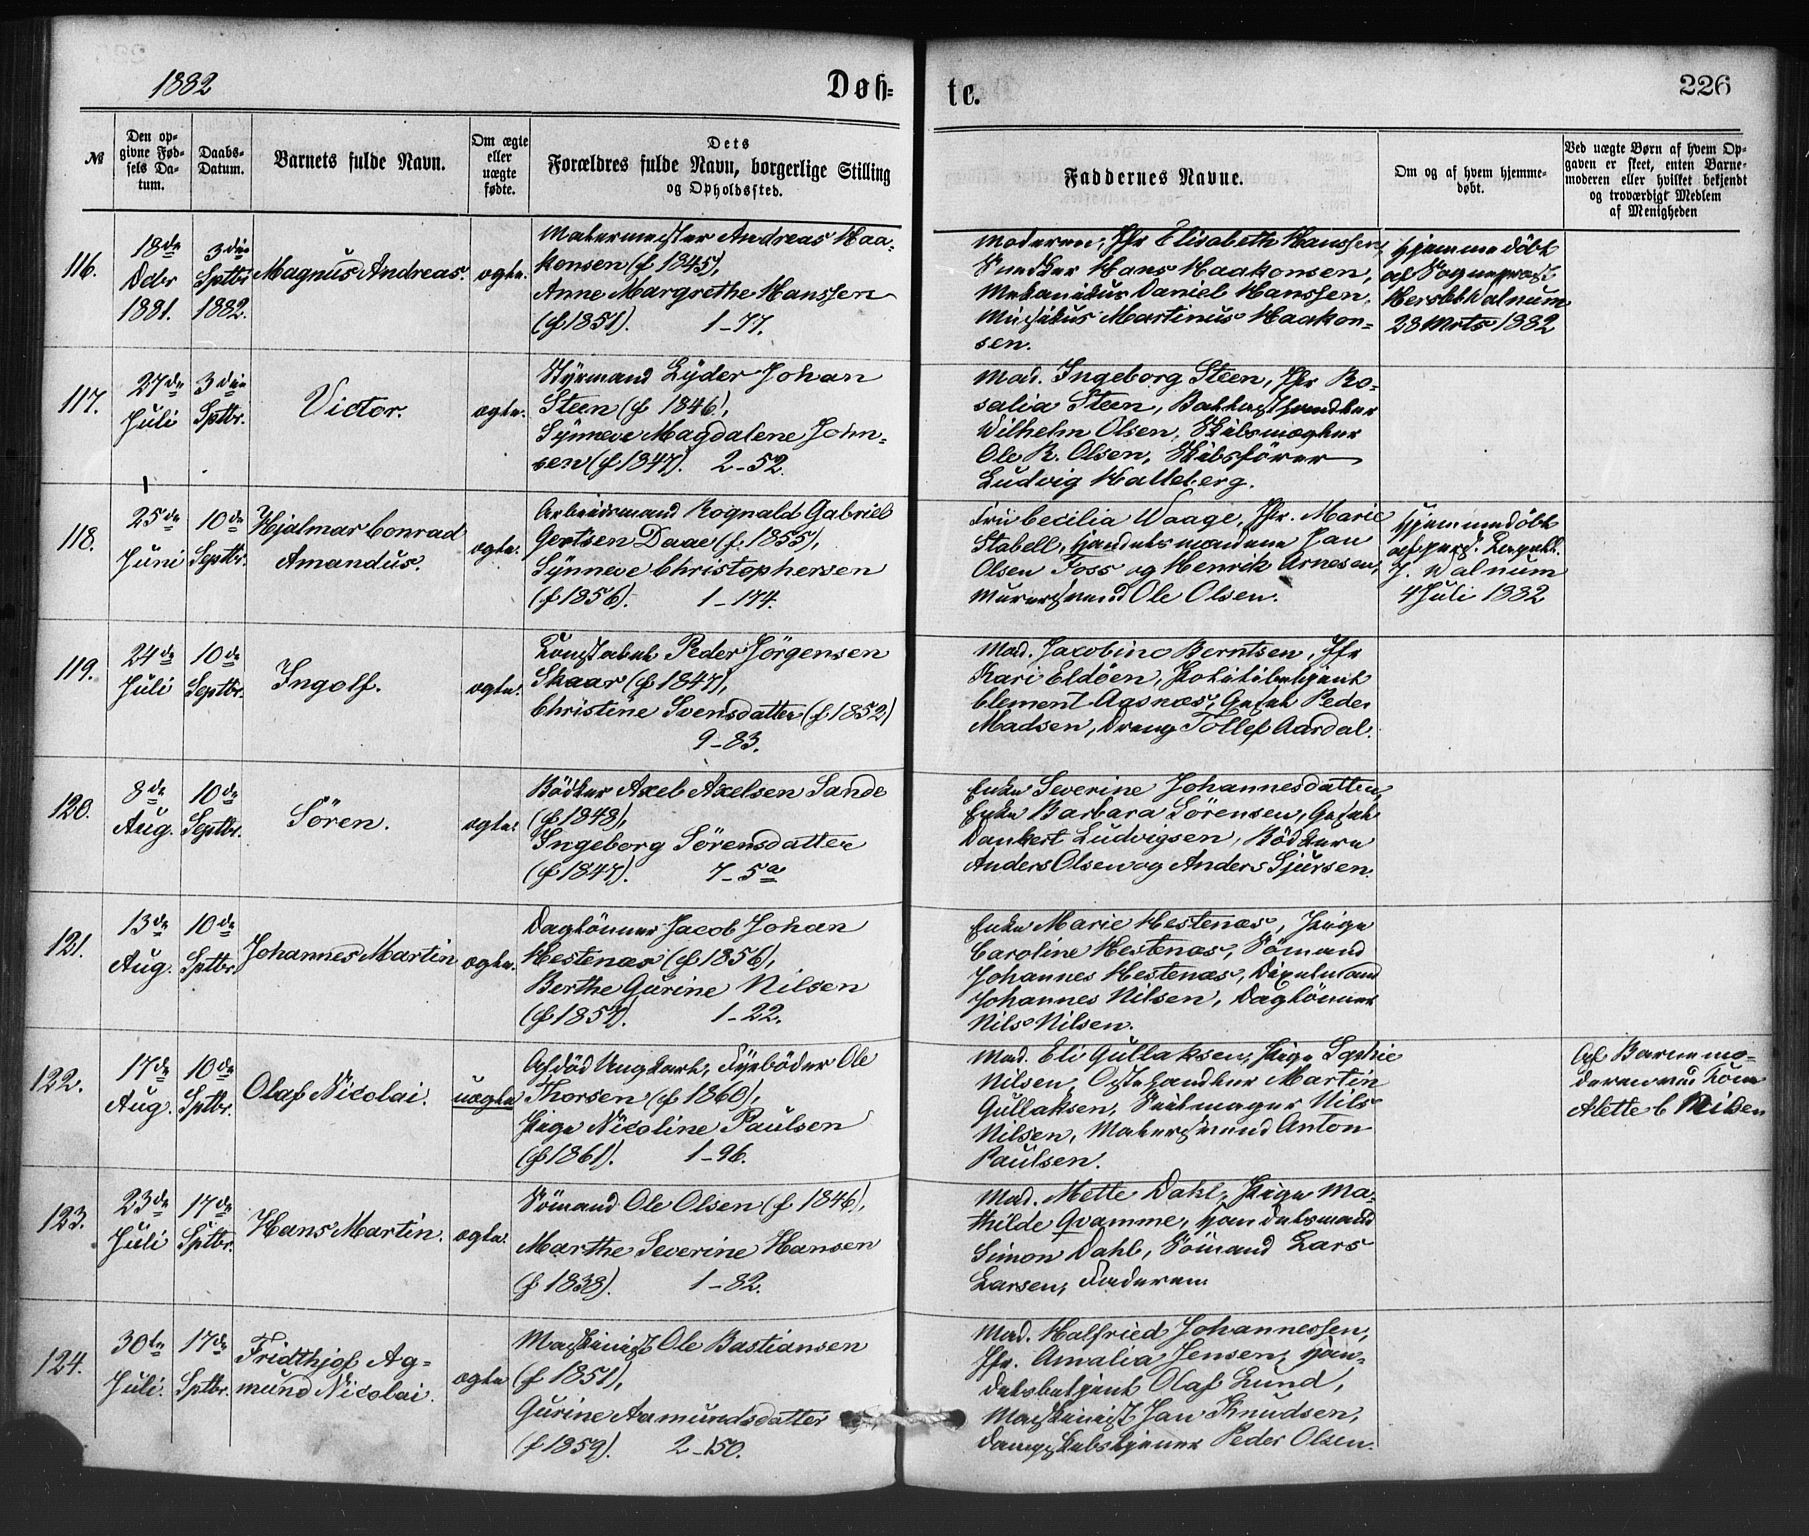 1882
Døb=
te.
226
№
Den op=
givne Fød=
sels Da=
tum.
Daabs=
Datum.
Barnets fulde Navn.
Om ægte
eller
uægte
fødte.
Dets
Forældres fulde Navn, borgerlige Stilling
og Opholdssted.
Faddernes Navne.
Om og af hvem hjemme=
døbt.
Ved uægte Børn af hvem Op=
gaven er skeet, enten Barne=
moderen eller hvilket bekjendt
og troværdigt Medlem
af Menigheden
116.
18de
Dcbr
1881.
3die
Sptbr
1882.
Magnus Andreas.
ægte.
Malermester Andreas Haa=
konsen (f 1845),
Anne Margrethe Hanssen
(f 1851). 1-77.
Moderen, Jfr Elisabeth Hanssen,
Snedker Hans Haakonsen,
Mekanikus Daniel Hanssen,
Musikus Martinus Haakon=
sen.
Hjemmedöbt
af Sognepræst
Walnum
28 Mrts 1882
117.
27de
Juli
3die
Sptbr.
Victor.
ægte.
Styrmand Lyder Johan
Steen (f 1846),
Synneve Magdalene John=
sen (f 1847). 2-52.
Mad. Ingeborg Steen, Jfr Ro=
salia Steen, Ballasthandler
Wilhelm Olsen, Skibsmægler
Ole R. Olsen, Skibsförer
Ludvig Halleberg.
118.
25de
Juni
10de
Septbr.
Hjalmar Conrad
Amandus.
ægte.
Arbeidsmand Rognald Gabriel
Gertsen Daae (f. 1855),
Synneve Christophersen
(f 1856). 1-174.
Fru Cecilia Waage, Jfr. Marie
Stabell, Handelsmændene Jan
Olsen Foss og Henrik Arnesen,
Murersvend Ole Olsen.
Hjemmedöbt
af pers. Kapell.
J. Walnum
4 Juli 1882
119.
24de
Juli
10de
Septbr.
Ingolf.
ægte.
Konstabel Peder Jörgensen
Skaar (f 1847),
Christine Svensdatter (f 1852)
9-83.
Mad. Jacobine Berntsen, Jfr
Kari Eldöen, Politibetjent
Clement Aasnæs, Gesel Peder
Madsen, Dreng Tollef Aardal.
120.
8de
Aug.
10de
Septbr.
Sören.
ægte.
Bödker Axel Axelsen Sande
(f 1848),
Ingeborg Sörensdatter
(f 1847). 7-5a
Enke Severine Johannesdatter,
Enke Barbara Sörensen, Gesel
Dankert Ludvigsen, Bödkerne
Anders Olsen og Anders Sjursen.
121.
13de
Aug.
10de
Sptbr.
Johannes Martin
ægte.
Daglönner Jacob Johan
Hestenæs (f 1856),
Berthe Gurine Nilsen
(f 1857). 1-22.
Enke Marie Hestenæs, Pige
Caroline Hestenæs, Sömand
Johannes Hestenæs,
Johannes Nilsen, Daglönner
Nils Nilsen.
122.
17de
Aug.
10de
Sptbr.
Olaf Nicolai.
uægte
Afdöd Ungkarl, Fyrböder Ole
Thorsen (f 1860),
Pige Nicoline Paulsen
(f 1861). 1-96.
Mad. Eli Gullaksen, Pige Sophie
Nilsen, Martin
Gullaksen, Seilmager Nils
Nilsen, Malersvend Anton
Paulsen.
Af Barnemo=
deren
Alette C Nilsen
123.
23de
Juli
17de
Sptbr.
Hans Martin.
ægte.
Sömand Ole Olsen (f 1846),
Marthe Severine Hansen
(f 1838). 1-82.
Mad. Mette Dahl, Pige Ma=
thilde Qvamme, Handelsmand
Simon Dahl, Sömand Lars
Larsen, Faderen
124.
30te
Juli.
17de
Sptbr.
Fridthjof Ag=
mund Nicolai.
ægte
Maskinist Ole Bastiansen
(f 1851),
Gurine Aamundsdatter
(f 1859). 2-150.
Mad. Halfried Johannessen,
Jfr. Amalia Jensen, Han=
delsbetjent Olaf Lund,
Maskinist Jan Knudsen,
Peder Olsen.